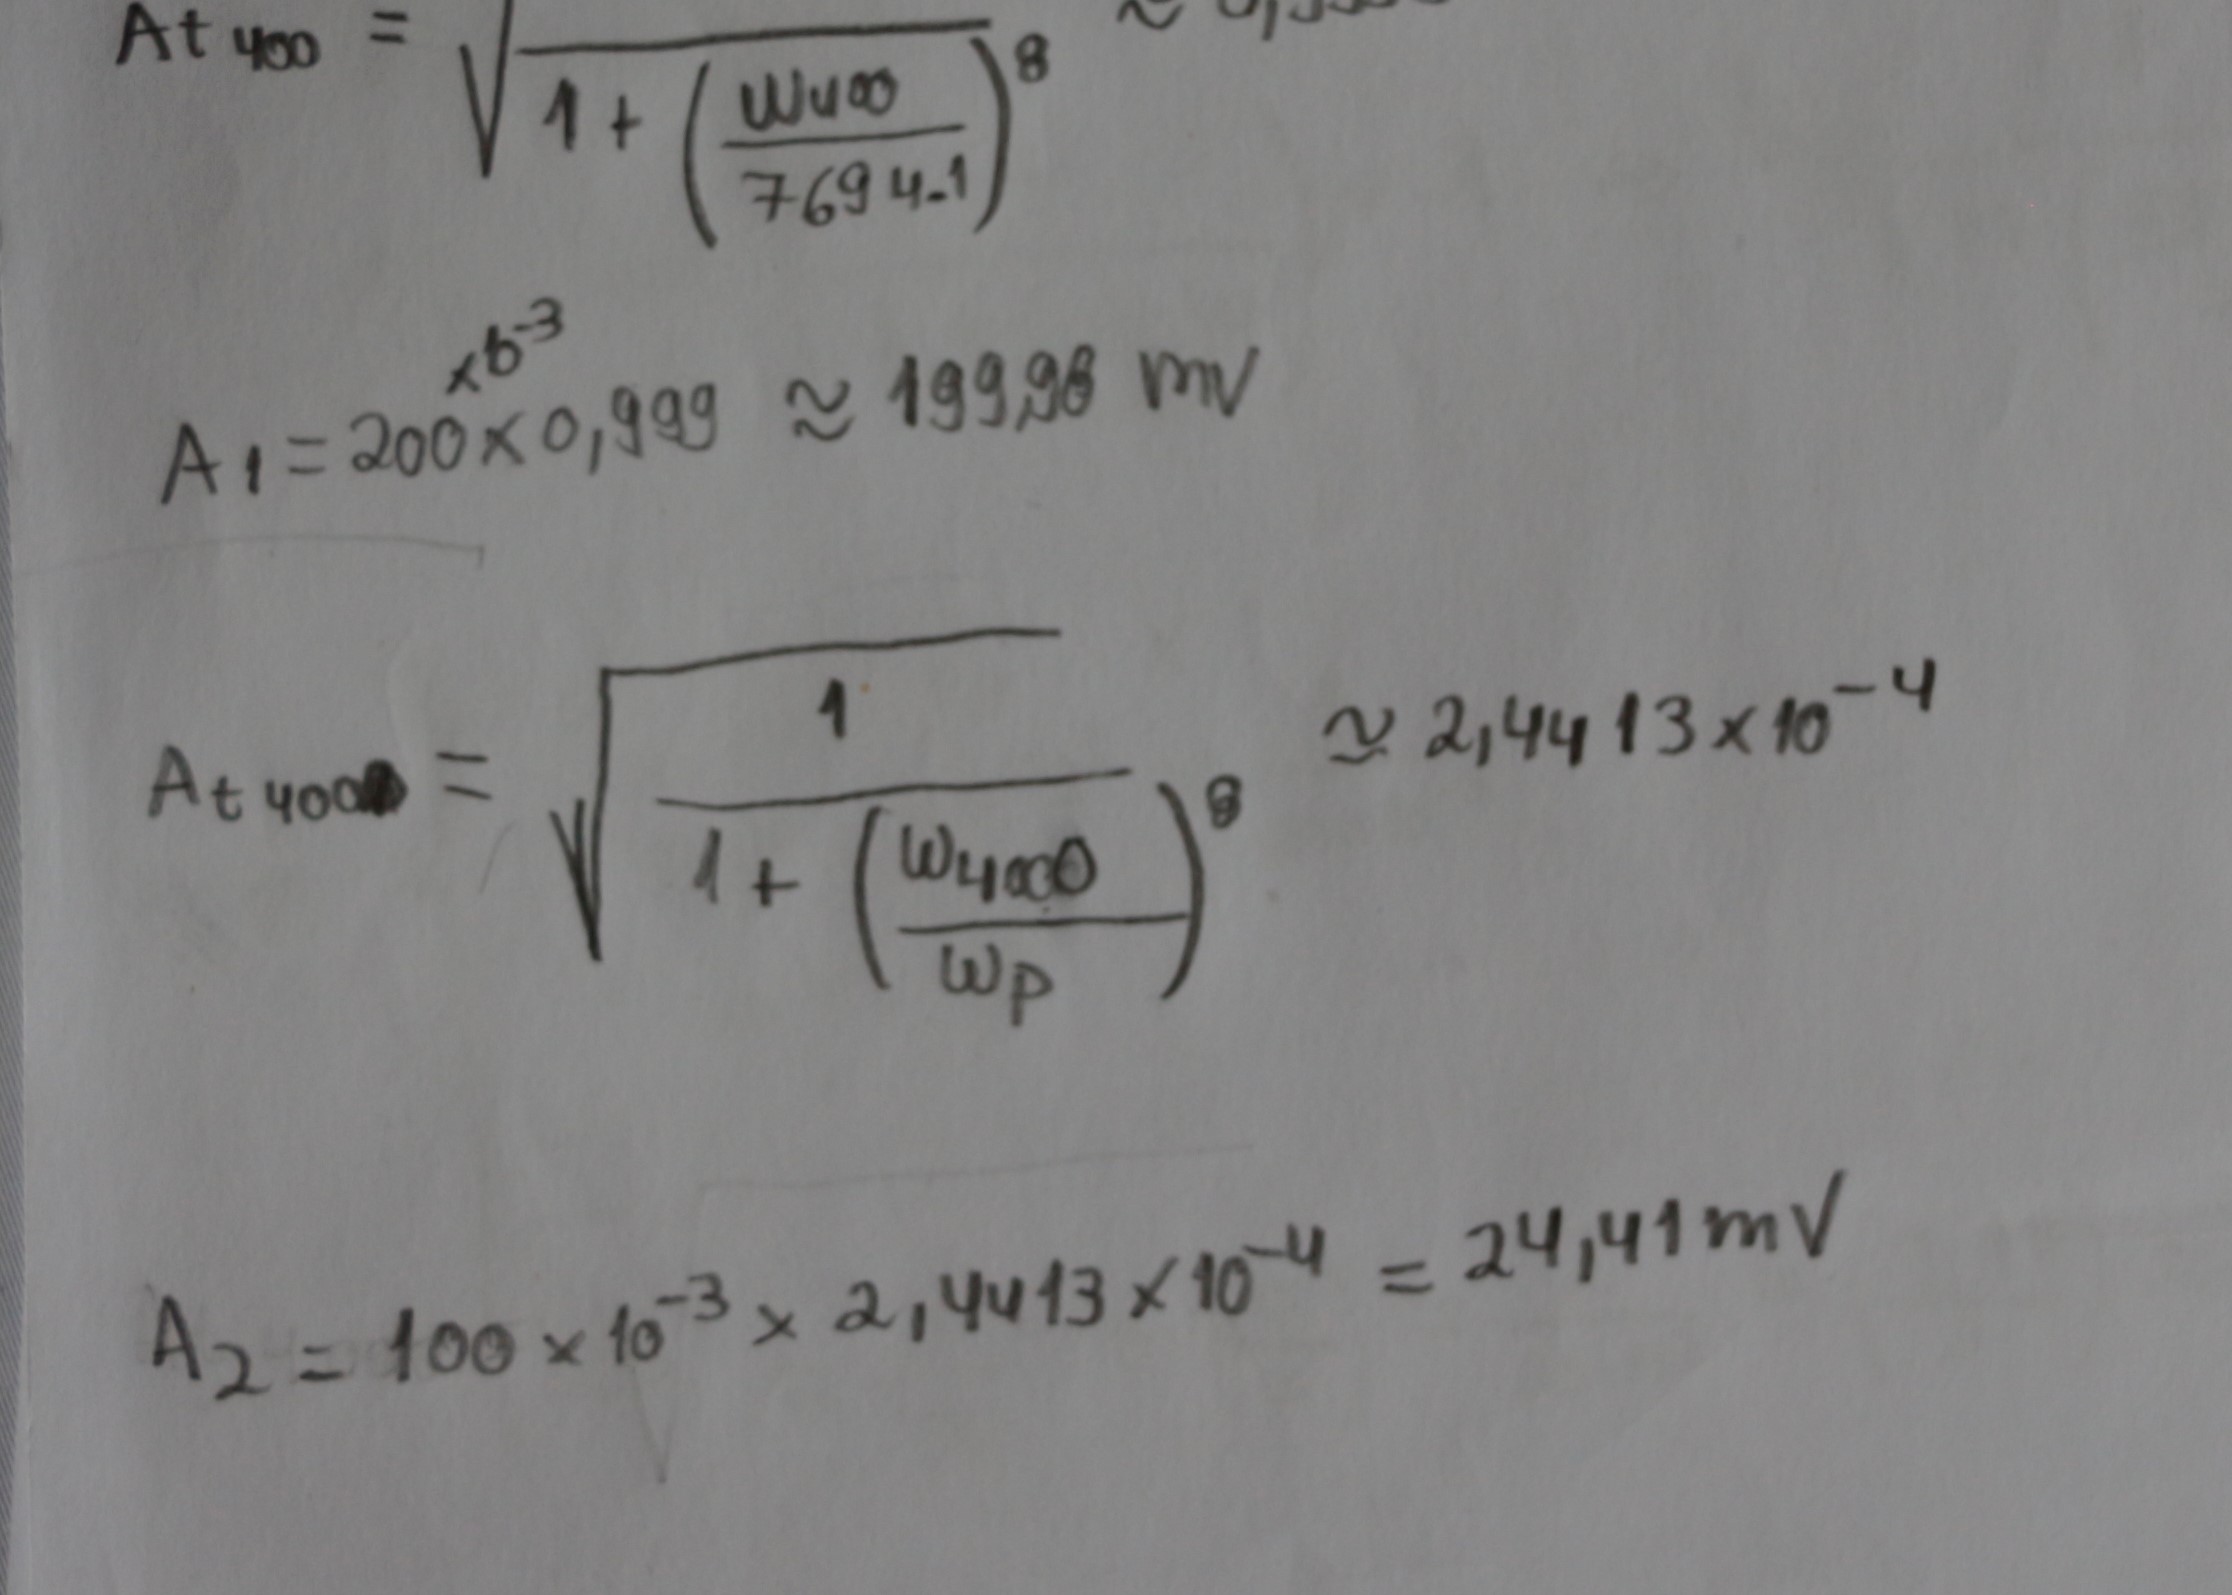 At 400 = √ 1 + ( W400 / 7694.1 )^8 ≈
×10^-3
A1 = 200 × 0,999 ≈ 199,98 mV
At 4000 = √ 1 / 1 + ( W4000 / Wp )^8 ≈ 2,4413 × 10^-4
A2 = 100 × 10^-3 × 2,4413 × 10^-4 = 24,41 mV